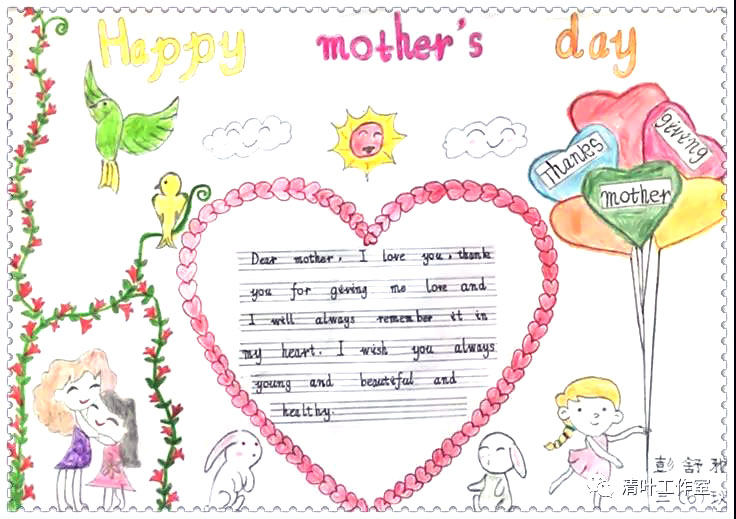 Happy mother's day
Thanks
giving
mother
Dear mother. I love you, thank
you for giving me love and
I will always remember it in
my heart. I wish you always
young and beautiful and
healthy.
彭舒雅
清叶工作室